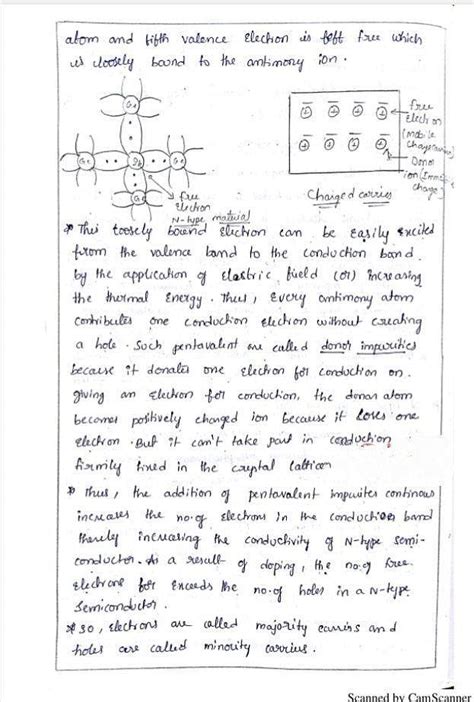 atom and fifth valence Electron is left free which
is loosely bound to the antimony ion.
Ge
Ge Sb Ge
Ge
free
Electron
N-type material
free
Electron
(mobile
charge carrier)
Donor
ion (Immobile
charge)
Charged carries
* This loosely bound Electron can be easily Excited
from the valence band to the conduction band
by the application of Electric field (or) increasing
the thermal Energy. Thus, Every antimony atom
contributes one conduction electron without creating
a hole. Such pentavalent are called donor impurities
because it donates one Electron for conduction on.
giving an Electron for conduction, the donar atom
becomes positively charged ion because it loses one
Electron. But it can't take part in conduction
firmily fixed in the crystal lattice
* Thus, the addition of pentavalent impurites continous
increases the no.of Electrons in the conduction band
thereby increasing the conductivity of N-type semi-
conductor. As a result of doping, the no.of free
Electrons far Exceeds the no.of holes in a N-type
Semiconductor.
* so, Electrons are called majority carriers and
holes are called minority carriers.
Scanned by CamScanner